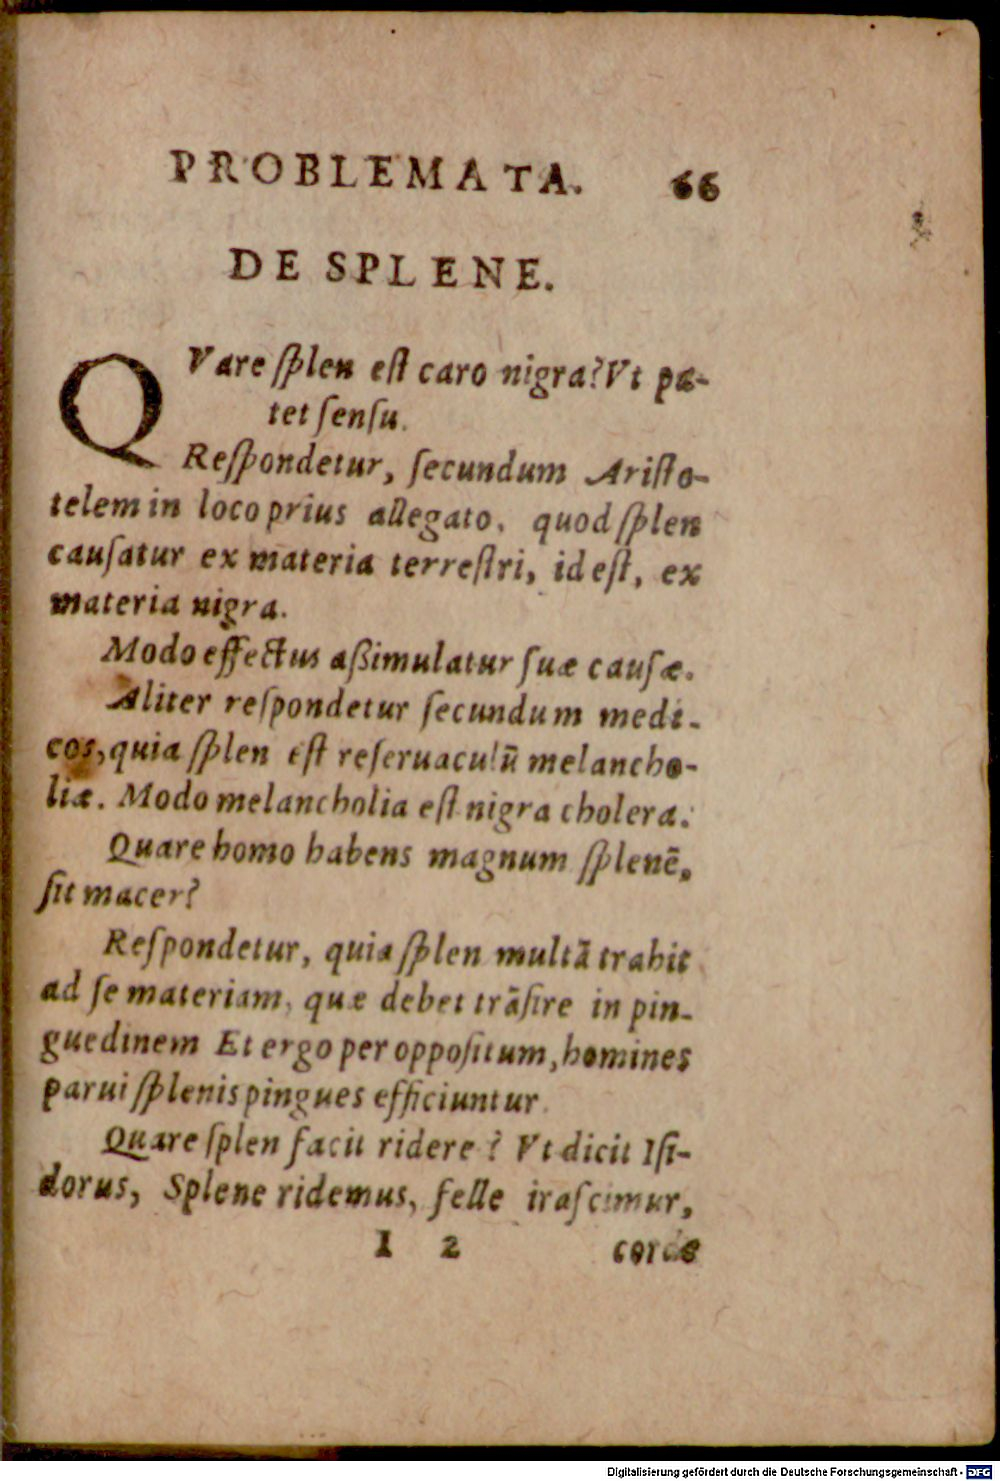 PROBLEMATA. 66
DE SPLENE.
QVare ſplen eſt caro nigra? Vt pa-
tet ſenſu.
Reſpondetur, ſecundum Ariſto-
telem in loco prius allegato, quod ſplen
cauſatur ex materia terreſtri, id eſt, ex
materia nigra.
Modo effectus aßimulatur ſuæ cauſæ.
Aliter reſpondetur ſecundum medi-
cos, quia ſplen eſt reſeruaculū melancho-
liæ. Modo melancholia eſt nigra cholera.
Quare homo habens magnum ſplenē,
ſit macer?
Reſpondetur, quia ſplen multā trahit
ad ſe materiam, quæ debet trāſire in pin-
guedinem Et ergo per oppoſitum, homines
parui ſplenis pingues efficiuntur.
Quare ſplen facit ridere? Vt dicit Iſi-
dorus, Splene ridemus, felle iraſcimur,
I 2 corde
Digitalisierung gefördert durch die Deutsche Forschungsgemeinschaft - DFG